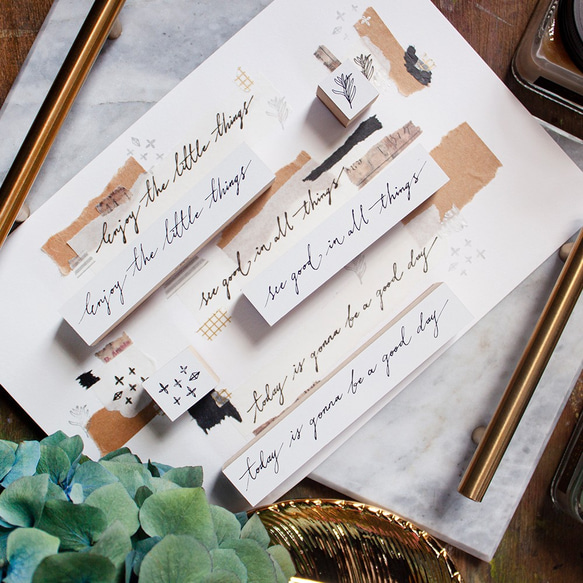 enjoy the little things
enjoy the little things
see good in all things
see good in all things
today is gonna be a good day
today is gonna be a good day